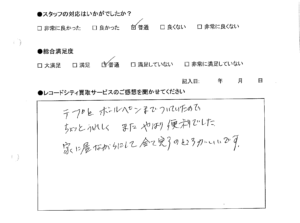 ●スタッフの対応はいかがでしたか?
□非常に良かった □良かった ☑普通 □良くない □非常に良くない
●総合満足度
□大満足 □満足 ☑普通 □満足していない □非常に満足していない
記入日: 年 月 日
●レコードシティ買取サービスのご感想を聞かせてください
テープと ボールペンまでついていたので
ちょっとうれしく また やはり 便利でした
家に居ながらにして 全て完了のところがいいです。